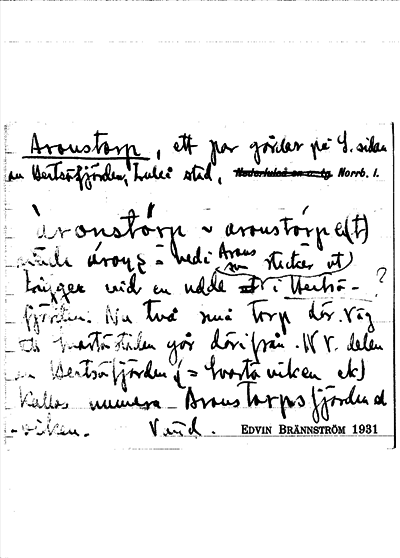 Aronstorp, ett par gårdar på S. sidan
av Hertsöfjärden, Luleå stad, Nederluleå sn o. tg Norrb. l.
àronstórp ~ aronstórpe(t)
nedi Arons
sticker ut)
Ligger vid en udde i Hertsö- ?
fjärden. Nu två små torp där. Väg
till Svartöstaden går därifrån. NV. delen
av Hertsöfjärden (= Svartöviken ek)
kallas numera Aronstorpsfjärden el
-viken. Vind.
EDVIN BRÄNNSTRÖM 1931